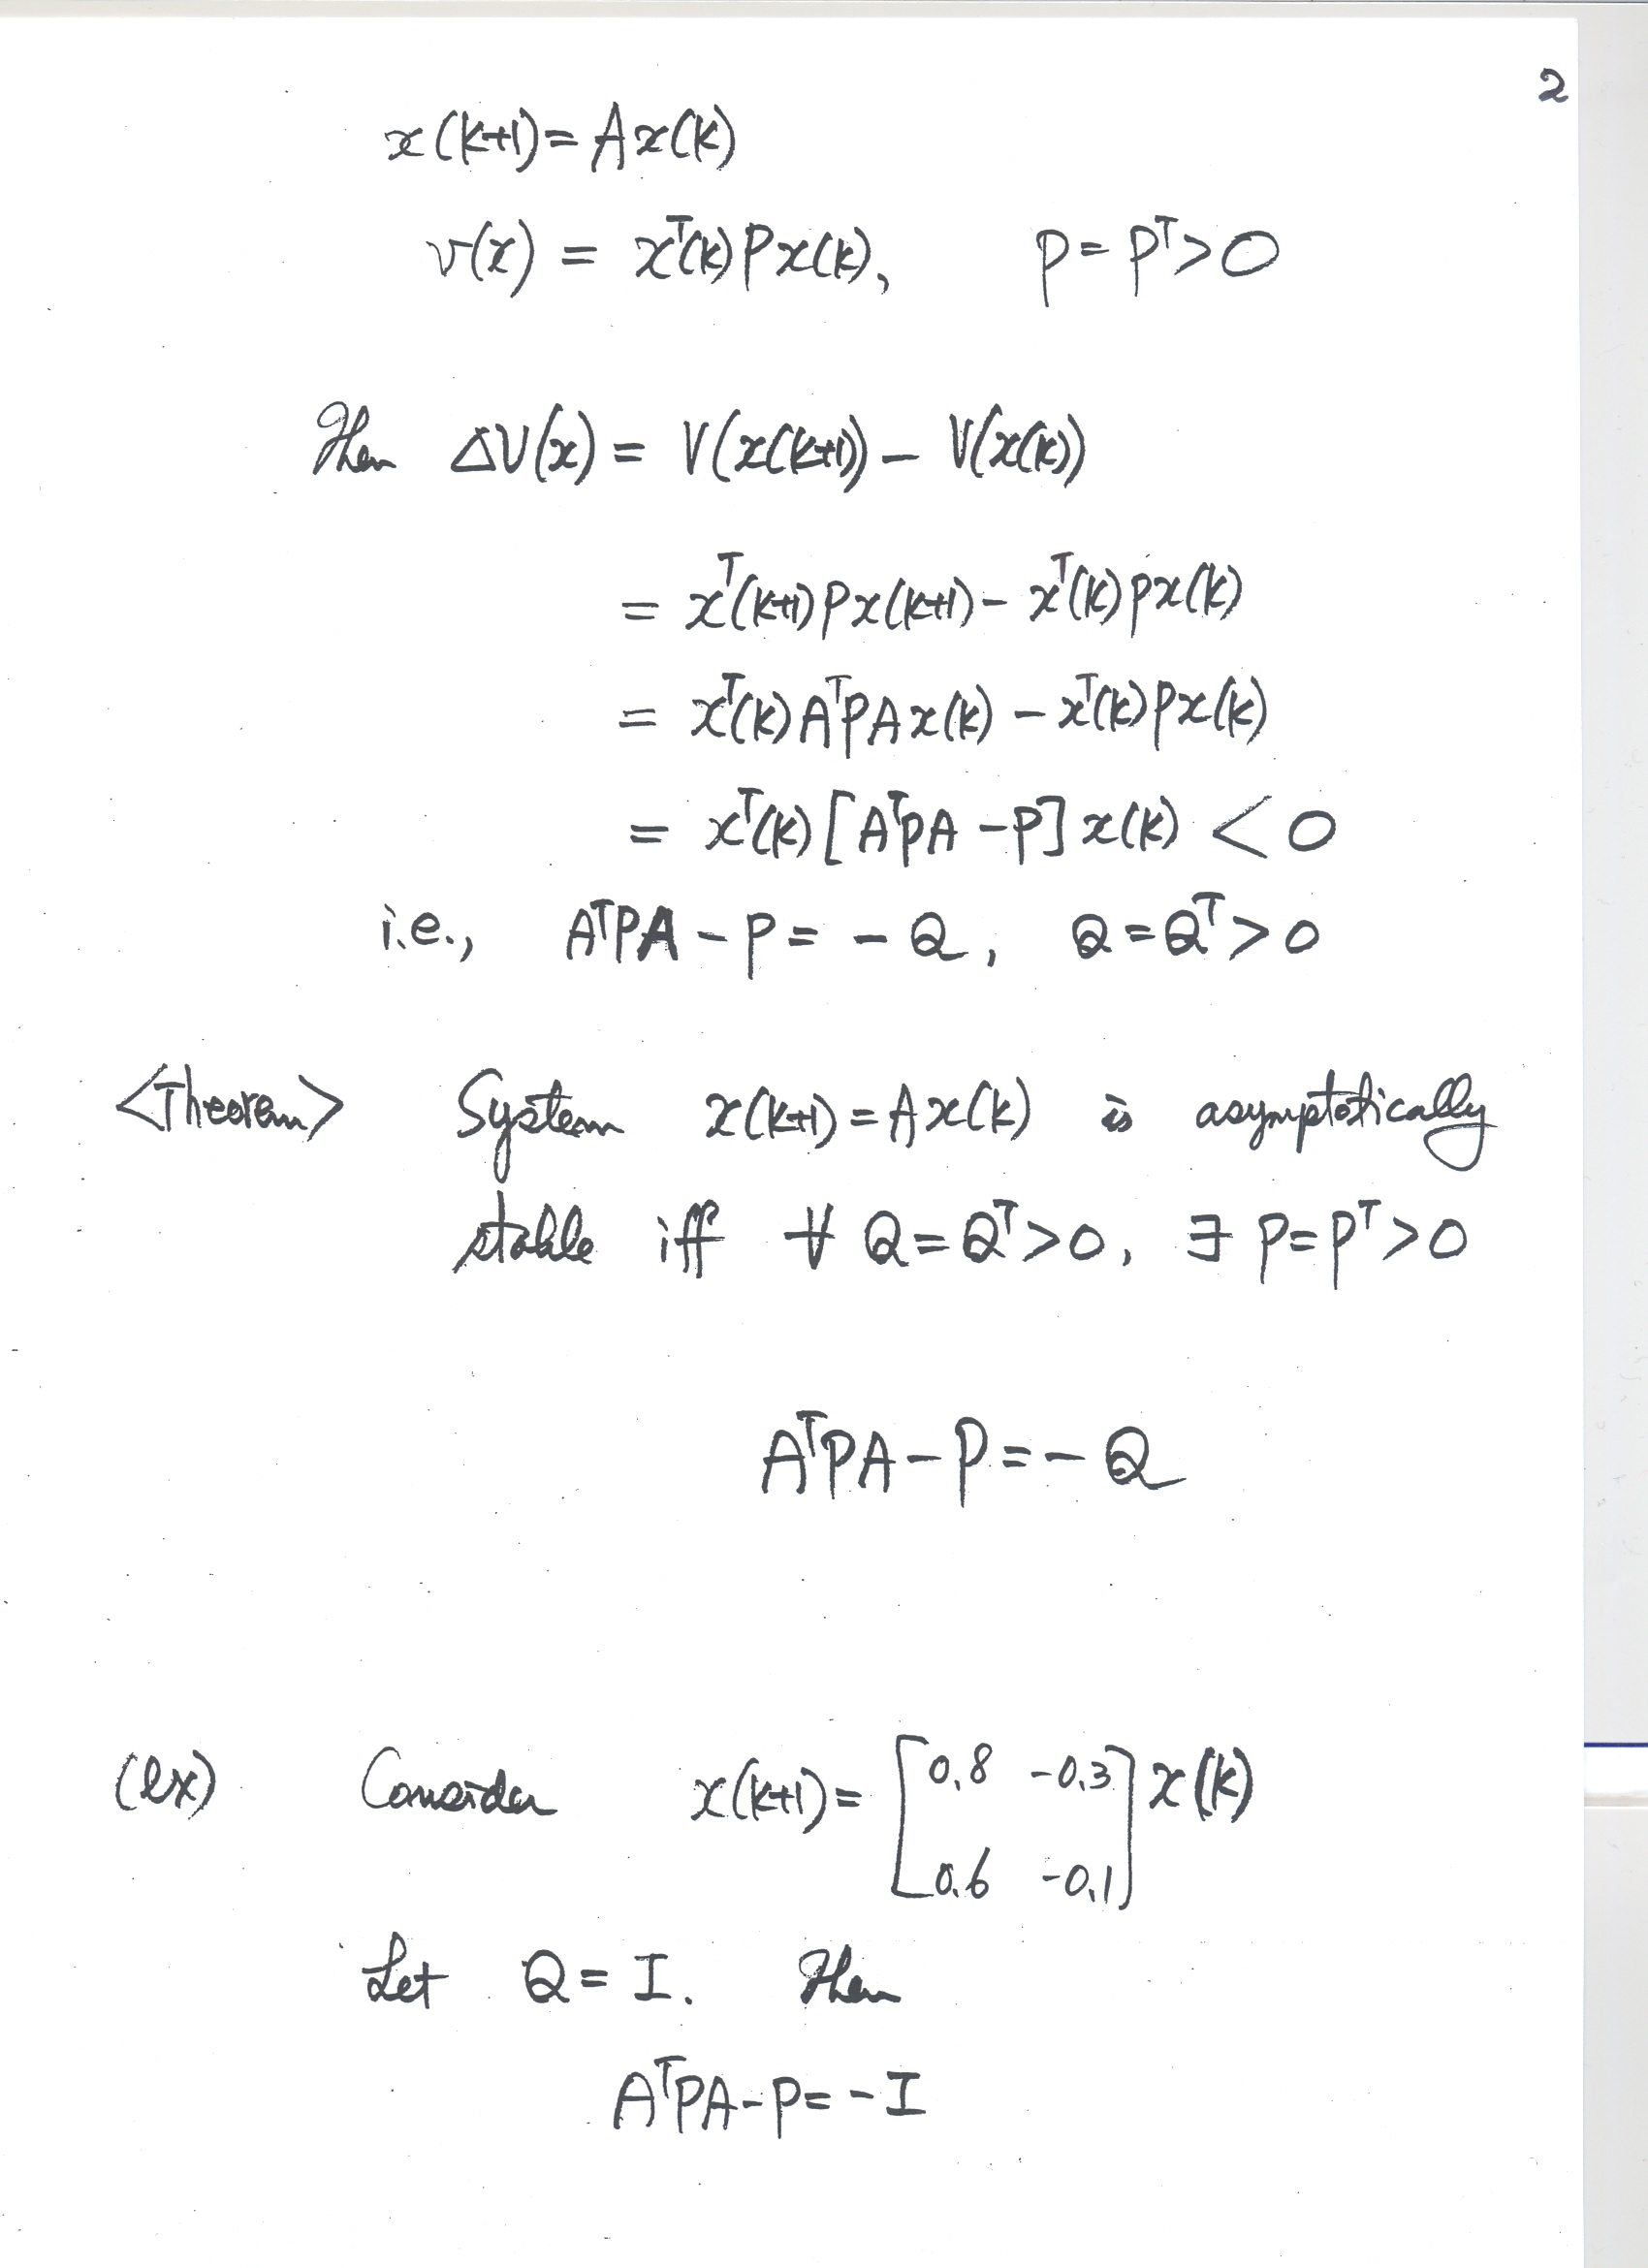 2
x(k+1) = Ax(k)
v(x) = xᵀ(k)Px(k), P = Pᵀ > 0
Then ΔV(x) = V(x(k+1)) - V(x(k))
= xᵀ(k+1)Px(k+1) - xᵀ(k)Px(k)
= xᵀ(k)AᵀPAx(k) - xᵀ(k)Px(k)
= xᵀ(k)[AᵀPA - P]x(k) < 0
i.e., AᵀPA - P = -Q, Q = Qᵀ > 0
<Theorem> System x(k+1) = Ax(k) is asymptotically
stable iff ∀ Q = Qᵀ > 0, ∃ P = Pᵀ > 0
AᵀPA - P = -Q
(ex) Consider x(k+1) = [0.8 -0.3
0.6 -0.1] x(k)
Let Q = I. Then
AᵀPA - P = -I